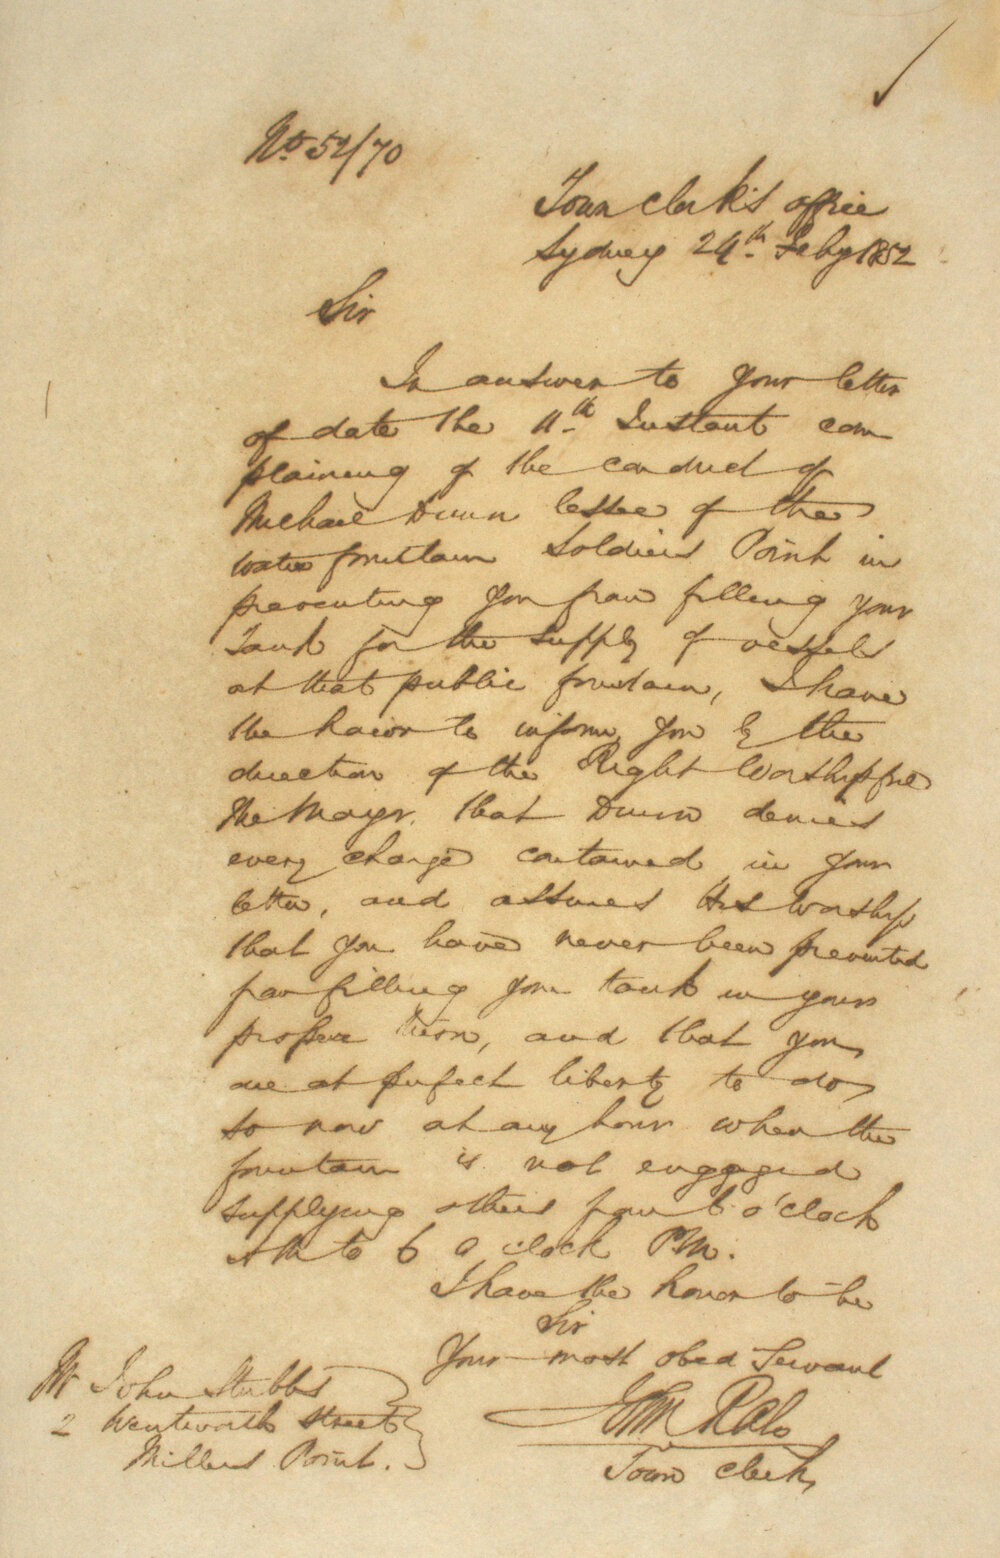 No. 52/70
Town Clerk's Office
Sydney 24th. Feby 1852
Sir
In answer to your letter
of date the 11th. Instant com
plaining of the conduct of
Michael Dunn lessee of the
water fountain Soldiers Point in
preventing you from filling your
Tank for the supply of vessels
at that public fountain, I have
the honor to inform you by the
direction of the Right Worshipful
the Mayor. that Dunn denies
every charge contained in your
letter, and assures His Worship
that you have never been prevented
from filling your tank in your
proper turn, and that you
are at perfect liberty to do
so now at any hour when the
fountain is not engaged
supplying others from 6 o'clock
AM to 6 o'clock PM.
I have the honor to be
Sir
Your most obed Servant
Town Clerk
Mr John Stubbs
2 Wentworth Street
Millers Point.